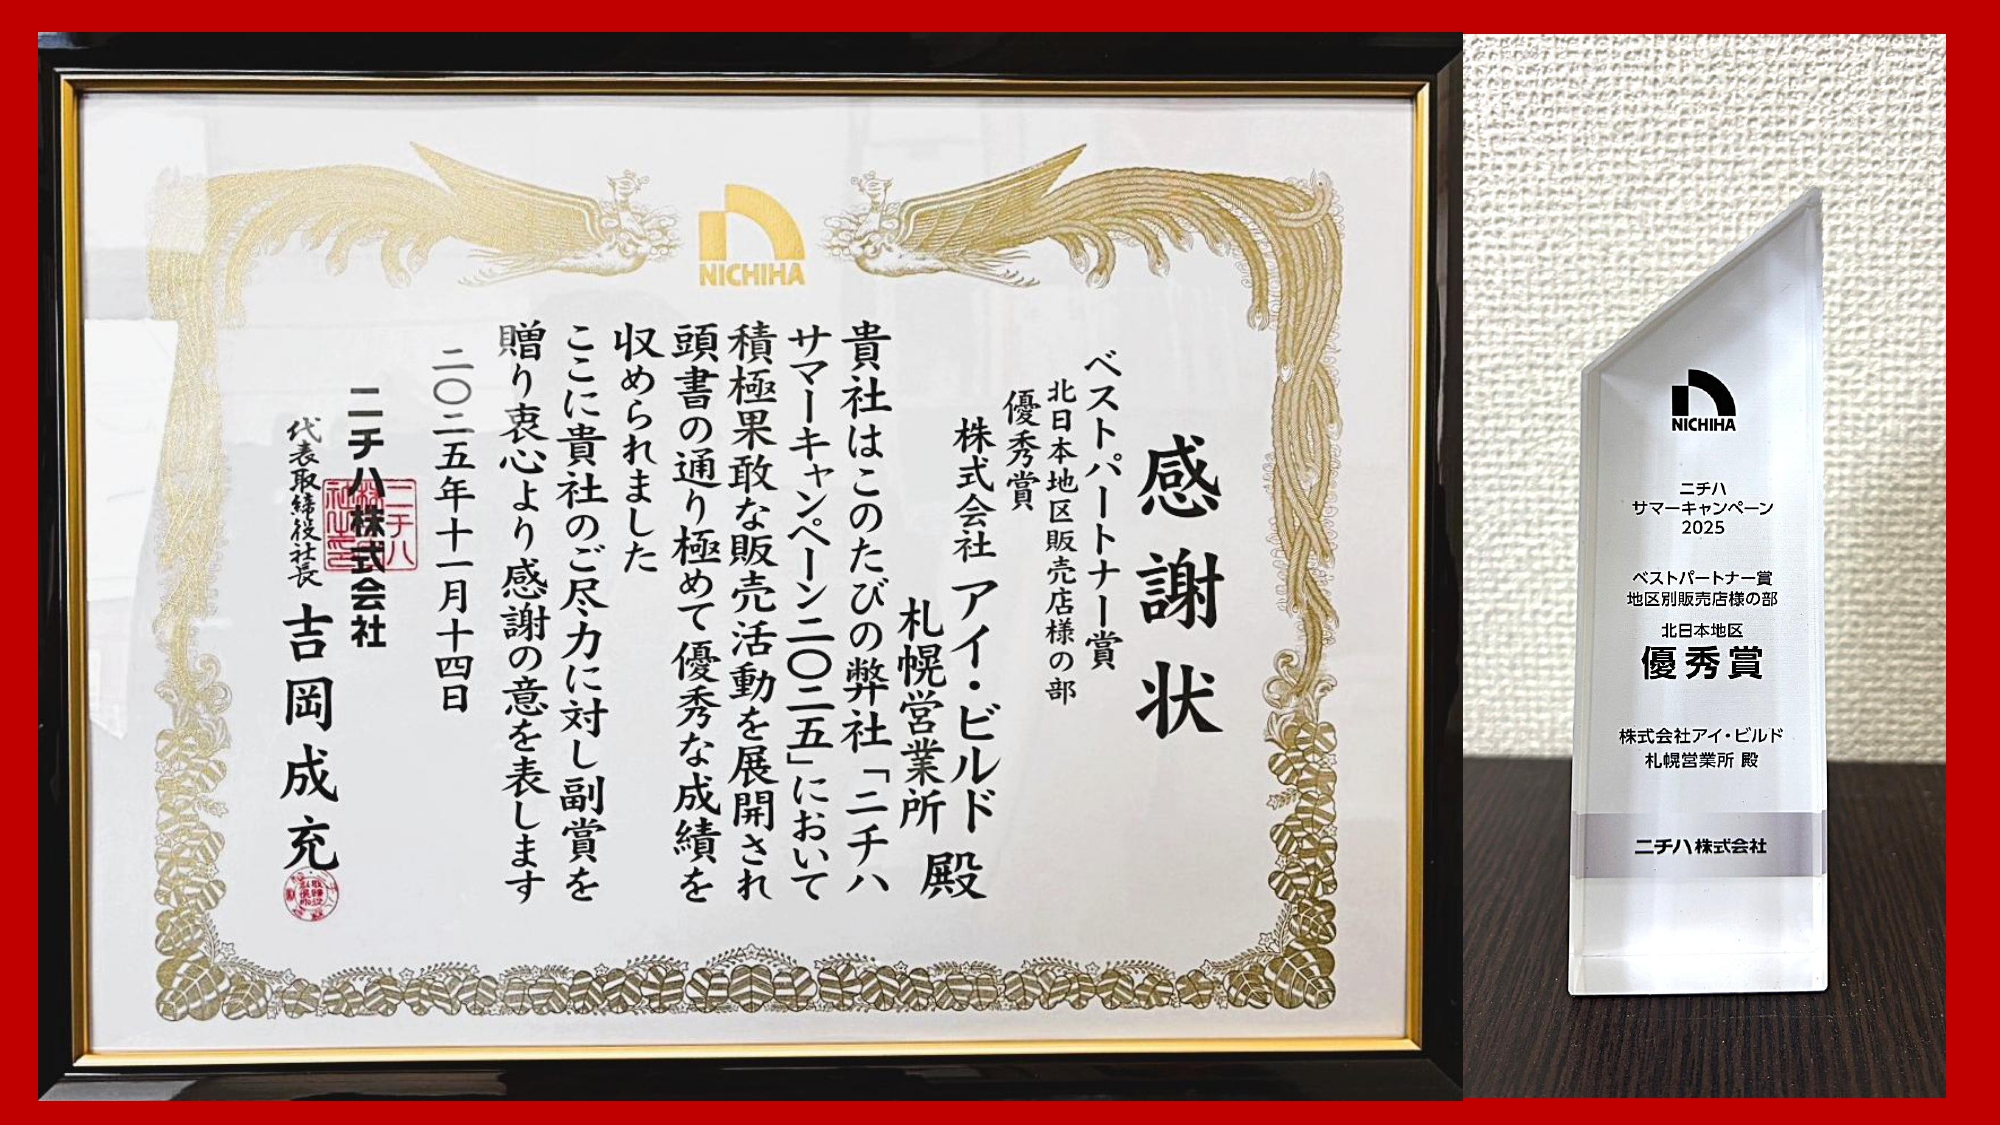 NICHIHA
感謝状
ベストパートナー賞
北日本地区販売店様の部
優秀賞
株式会社 アイ・ビルド
札幌営業所 殿
貴社はこのたびの弊社「ニチハ
サマーキャンペーン二〇二五」において
積極果敢な販売活動を展開され
頭書の通り極めて優秀な成績を
収められました
ここに貴社のご尽力に対し副賞を
贈り衷心より感謝の意を表します
二〇二五年十一月十四日
ニチハ株式会社
代表取締役社長 吉岡成充
NICHIHA
ニチハ
サマーキャンペーン
2025
ベストパートナー賞
地区別販売店様の部
北日本地区
優秀賞
株式会社アイ・ビルド
札幌営業所 殿
ニチハ株式会社